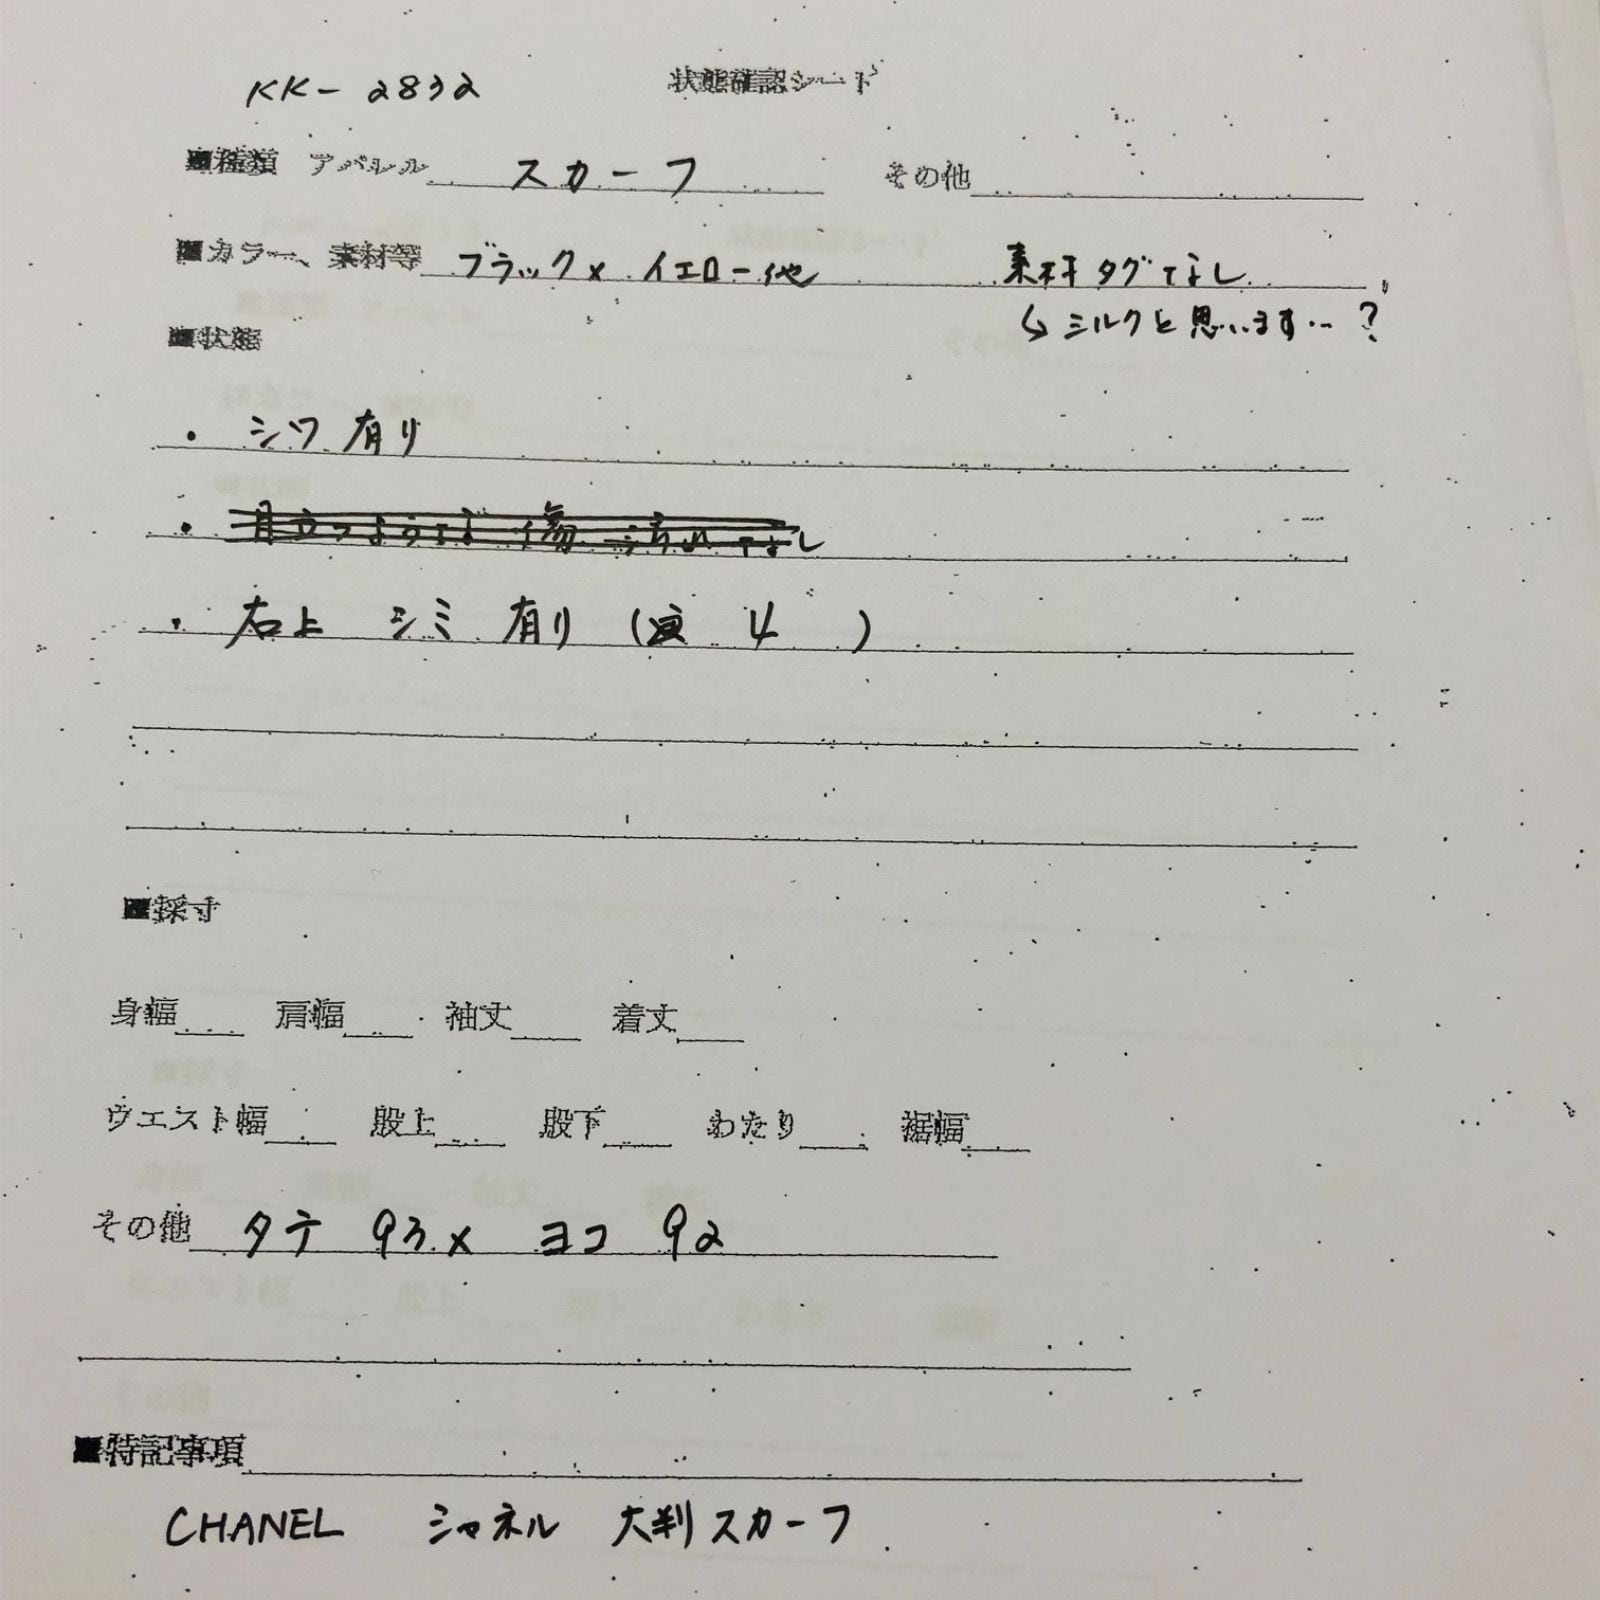 KK- 2832 状態確認シート
■種類 アパレル スカーフ その他
■カラー、素材等 ブラック× イエロー他 素材タグなし
↳ シルクと思います…?
■状態
・ シワ 有り
・ 目立つような 傷 汚れ なし
・ 右上 シミ 有り ( 4 )
■採寸
身幅 肩幅 袖丈 着丈
ウエスト幅 股上 股下 わたり 裾幅
その他 タテ 93 × ヨコ 92
■特記事項
CHANEL シャネル 大判スカーフ